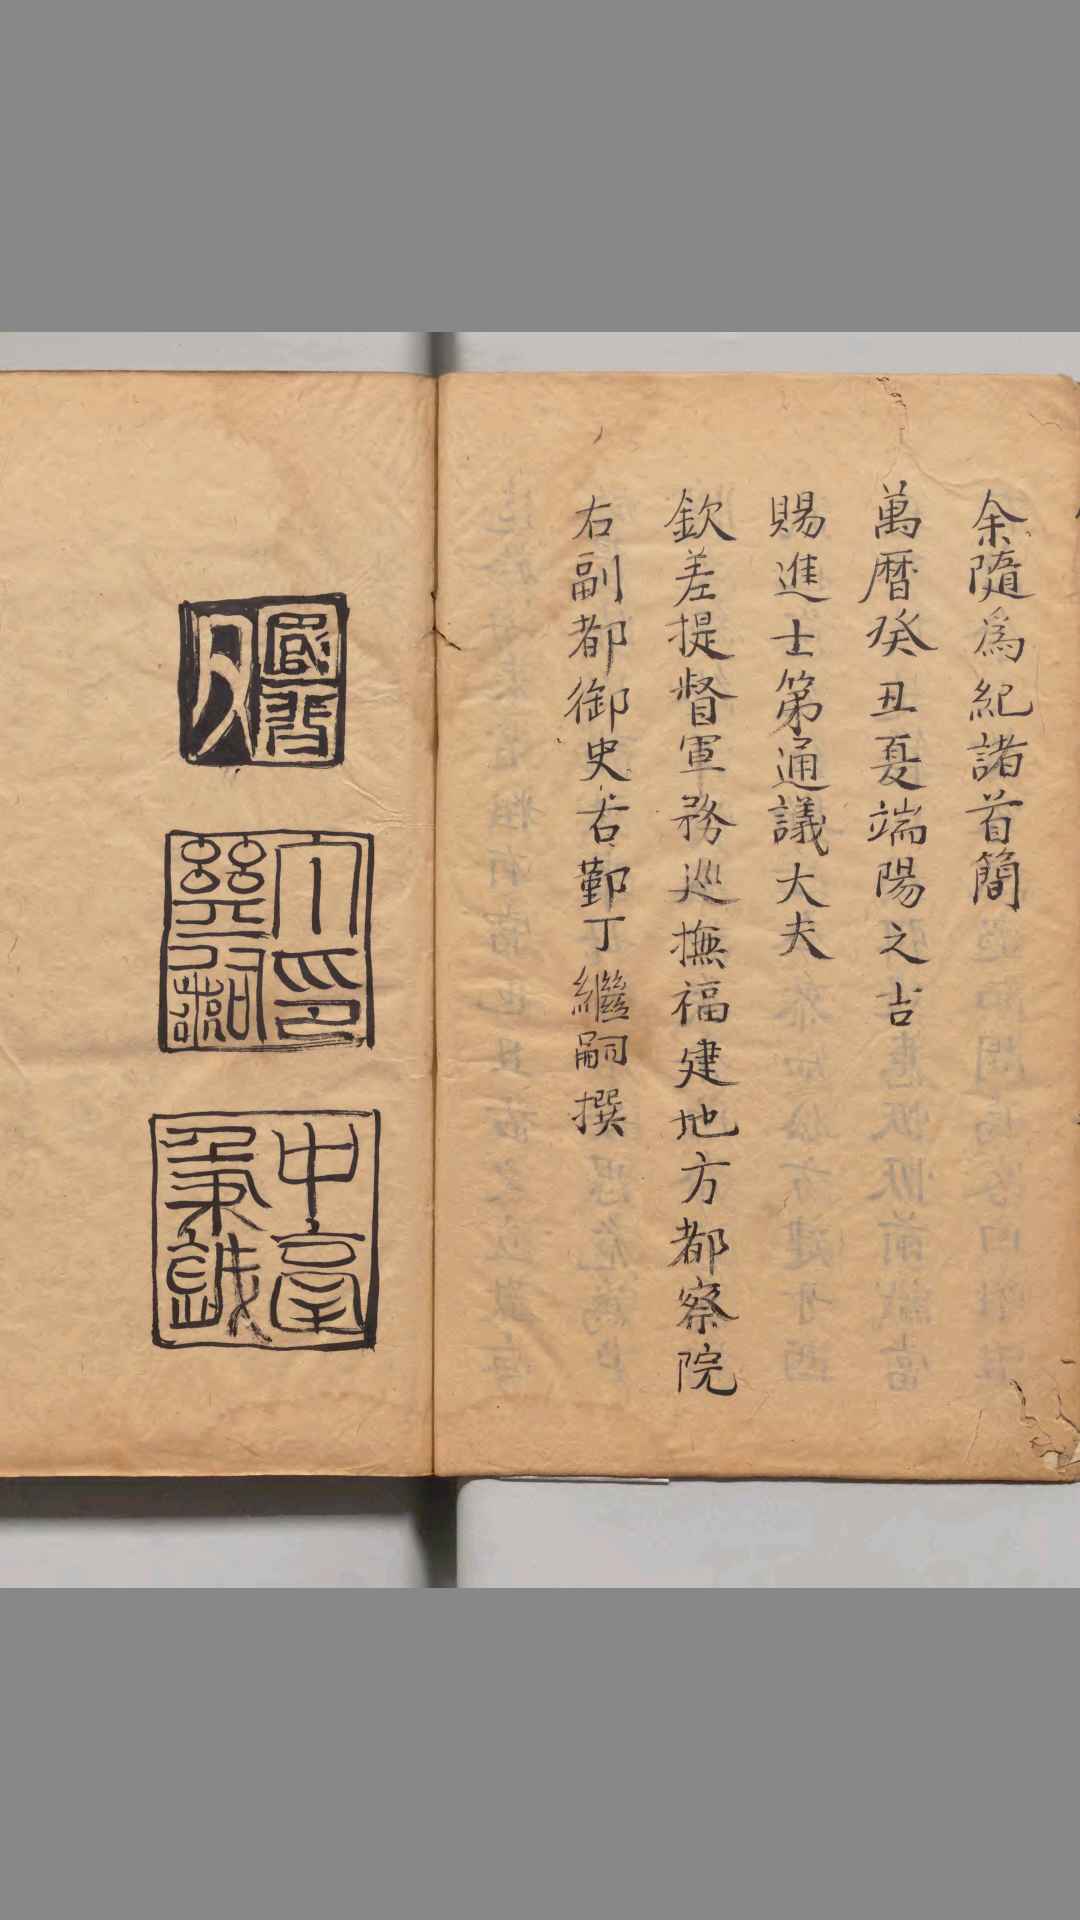 余隨爲紀諸首簡
萬曆癸丑夏端陽之吉
賜進士第通議大夫
欽差提督軍務巡撫福建地方都察院
右副都御史古鄞丁繼嗣撰
丁印
繼嗣